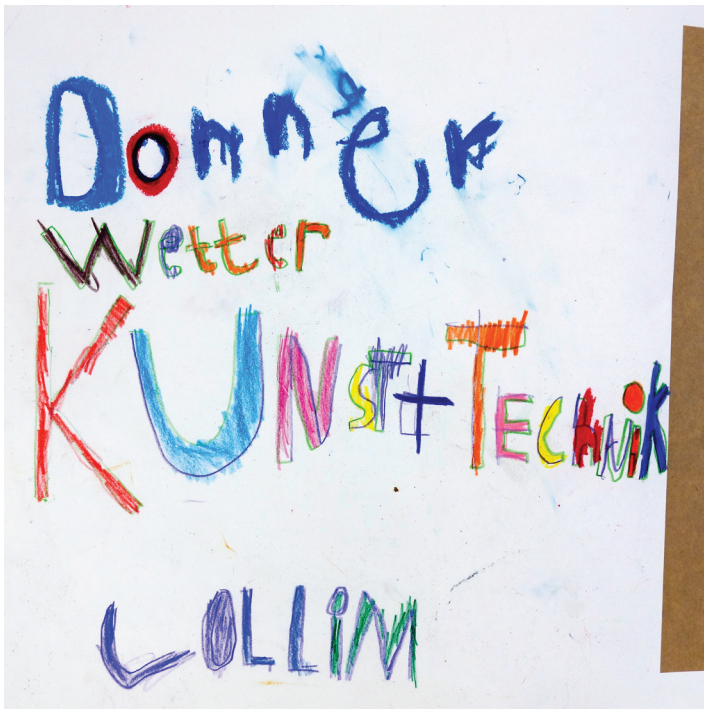 Donner
Wetter
KUNST + TEchnik
LOLLiM